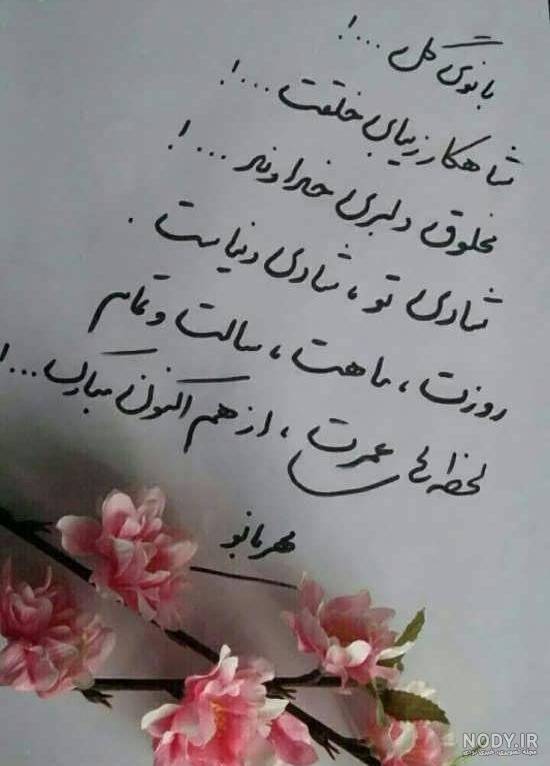 بانوی گل ...!
شاهکار زیبای خلقت ...!
مخلوق دلبری خداوند ...!
شادی تو ، شادی دنیاست .
روزت ، ماهت ، سالت و تمام
لحظه های عمرت ، از هم اکنون مبارک ...!
مهربانو
NODY.IR